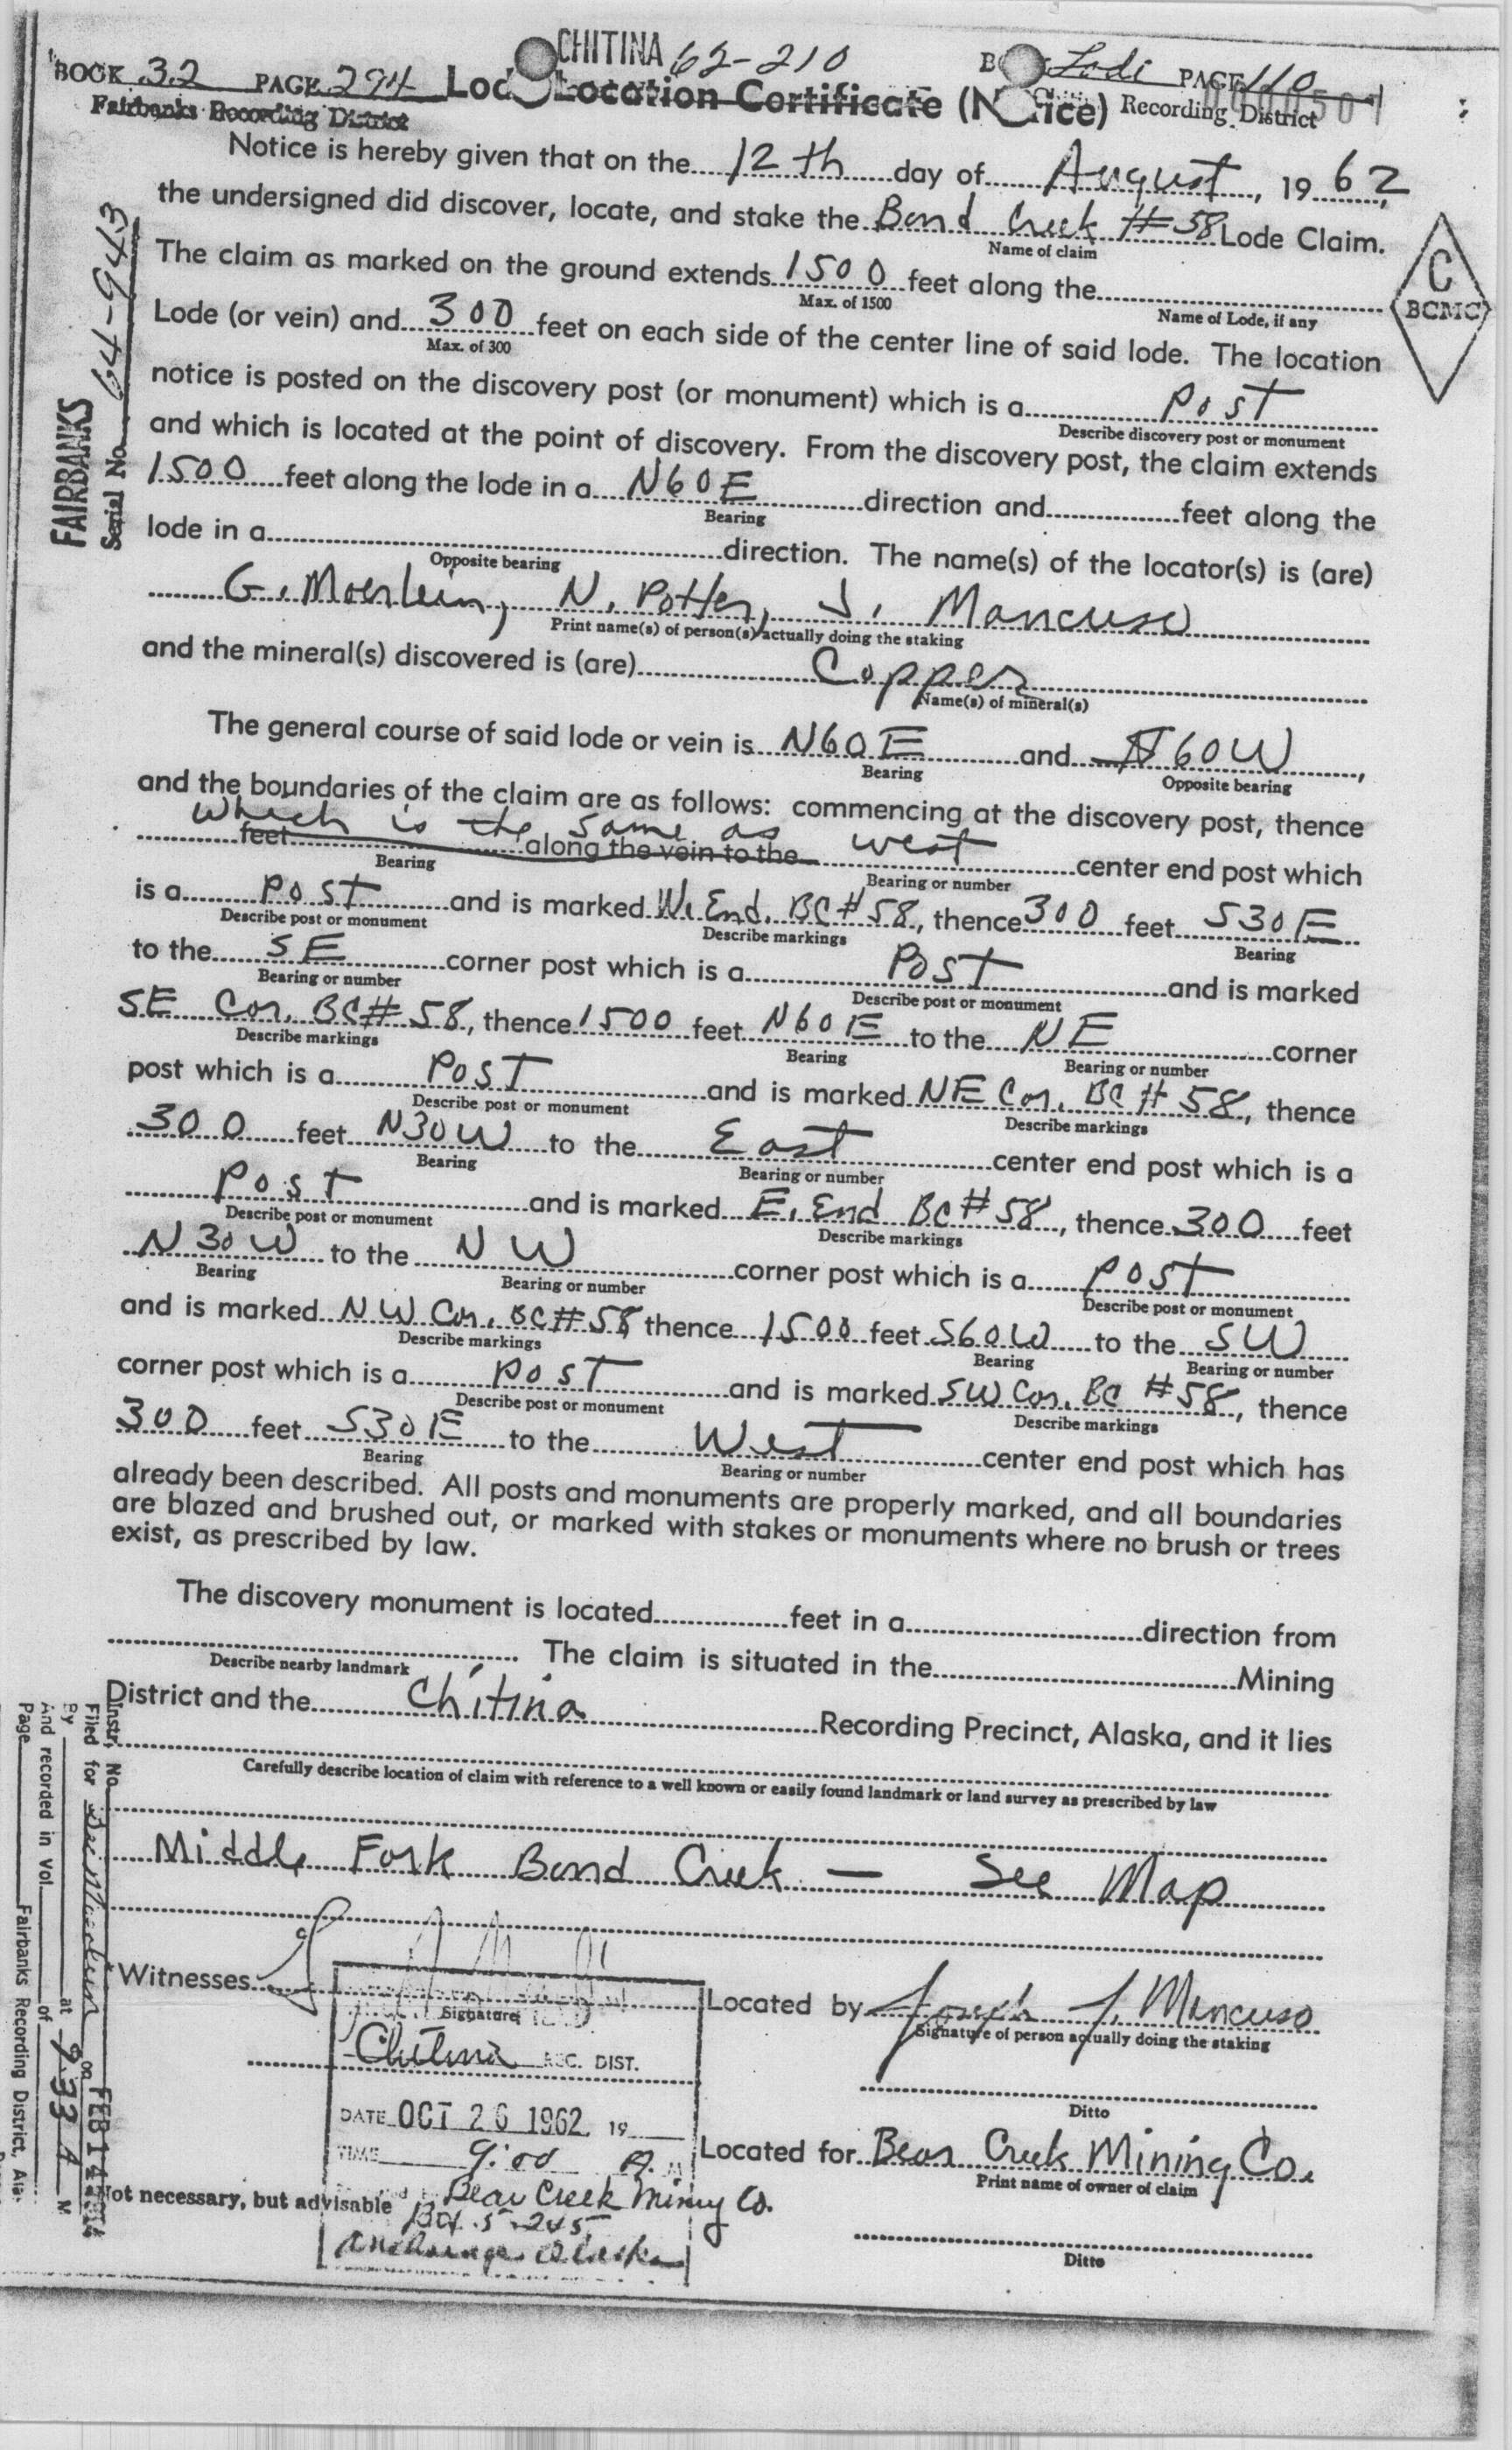 CHITINA 62-210
BOOK 32 PAGE 294 Lode Location Certificate (Notice) Lodi PAGE 110
Fairbanks Recording District Recording District
Notice is hereby given that on the 12th day of August, 1962,
the undersigned did discover, locate, and stake the Bond Creek #58 Lode Claim.
Name of claim
The claim as marked on the ground extends 1500 feet along the
Max. of 1500 Name of Lode, if any
C
BCMC
Lode (or vein) and 300 feet on each side of the center line of said lode. The location
Max. of 300
notice is posted on the discovery post (or monument) which is a Post
Describe discovery post or monument
and which is located at the point of discovery. From the discovery post, the claim extends
1500 feet along the lode in a N60E direction and feet along the
Bearing
lode in a direction. The name(s) of the locator(s) is (are)
Opposite bearing
G. Moerlein, N. Potter, J. Mancuso
Print name(s) of person(s) actually doing the staking
and the mineral(s) discovered is (are) Copper
Name(s) of mineral(s)
The general course of said lode or vein is N60E and 60W,
Bearing Opposite bearing
and the boundaries of the claim are as follows: commencing at the discovery post, thence
which is the same as
feet along the vein to the west center end post which
Bearing Bearing or number
is a Post and is marked W. End. BC #58, thence 300 feet S30E
Describe post or monument Describe markings Bearing
to the SE corner post which is a Post and is marked
Bearing or number Describe post or monument
SE Cor. BC #58, thence 1500 feet N60E to the NE corner
Describe markings Bearing Bearing or number
post which is a Post and is marked NE Cor. BC #58, thence
Describe post or monument Describe markings
300 feet N30W to the East center end post which is a
Bearing Bearing or number
Post and is marked E. End BC #58, thence 300 feet
Describe post or monument Describe markings
N30W to the NW corner post which is a Post
Bearing Bearing or number Describe post or monument
and is marked NW Cor. BC #58 thence 1500 feet S60W to the SW
Describe markings Bearing Bearing or number
corner post which is a Post and is marked SW Cor. BC #58, thence
Describe post or monument Describe markings
300 feet S30E to the West center end post which has
Bearing Bearing or number
already been described. All posts and monuments are properly marked, and all boundaries
are blazed and brushed out, or marked with stakes or monuments where no brush or trees
exist, as prescribed by law.
The discovery monument is located feet in a direction from
Describe nearby landmark
The claim is situated in the Mining
District and the Chitina Recording Precinct, Alaska, and it lies
Carefully describe location of claim with reference to a well known or easily found landmark or land survey as prescribed by law
Middle Fork Bond Creek — See Map
Witnesses Located by Joseph J. Mancuso
Signature Signature of person actually doing the staking
Chitina REC. DIST.
Ditto
DATE OCT 26 1962 19
TIME 9:00 A. M
Located for Bear Creek Mining Co.
Print name of owner of claim
Not necessary, but advisable Bear Creek Mining Co.
Box 5-245
Anchorage Alaska
Ditto
FAIRBANKS
Serial No. 64-9443
Instr. No.
Filed for
FEB 14
By at 9:33 A M
And recorded in Vol. of
Page Fairbanks Recording District, Alas.